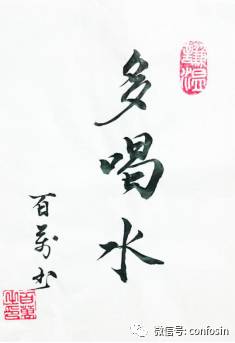 多喝水
百万书
微信号: confosin